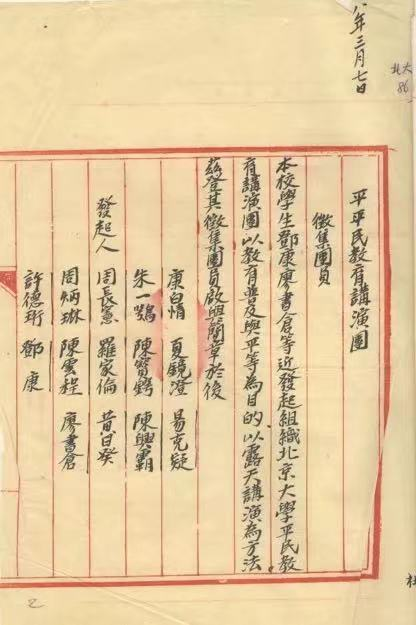 八年三月七日
北大
86
平平民教育講演團
徵集團員
本校學生鄧康廖書倉等近發起組織北京大學平民教
育講演團以教育普及與平等為目的.以露天講演為方法。
茲登其徵集團員啟與簡章於後
康白情 夏鏡澄 易克疑
朱一鶚 陳寶鍔 陳興霸
發起人 周長憲 羅家倫 黃日葵
周炳琳 陳雲程 廖書倉
許德珩 鄧康
2